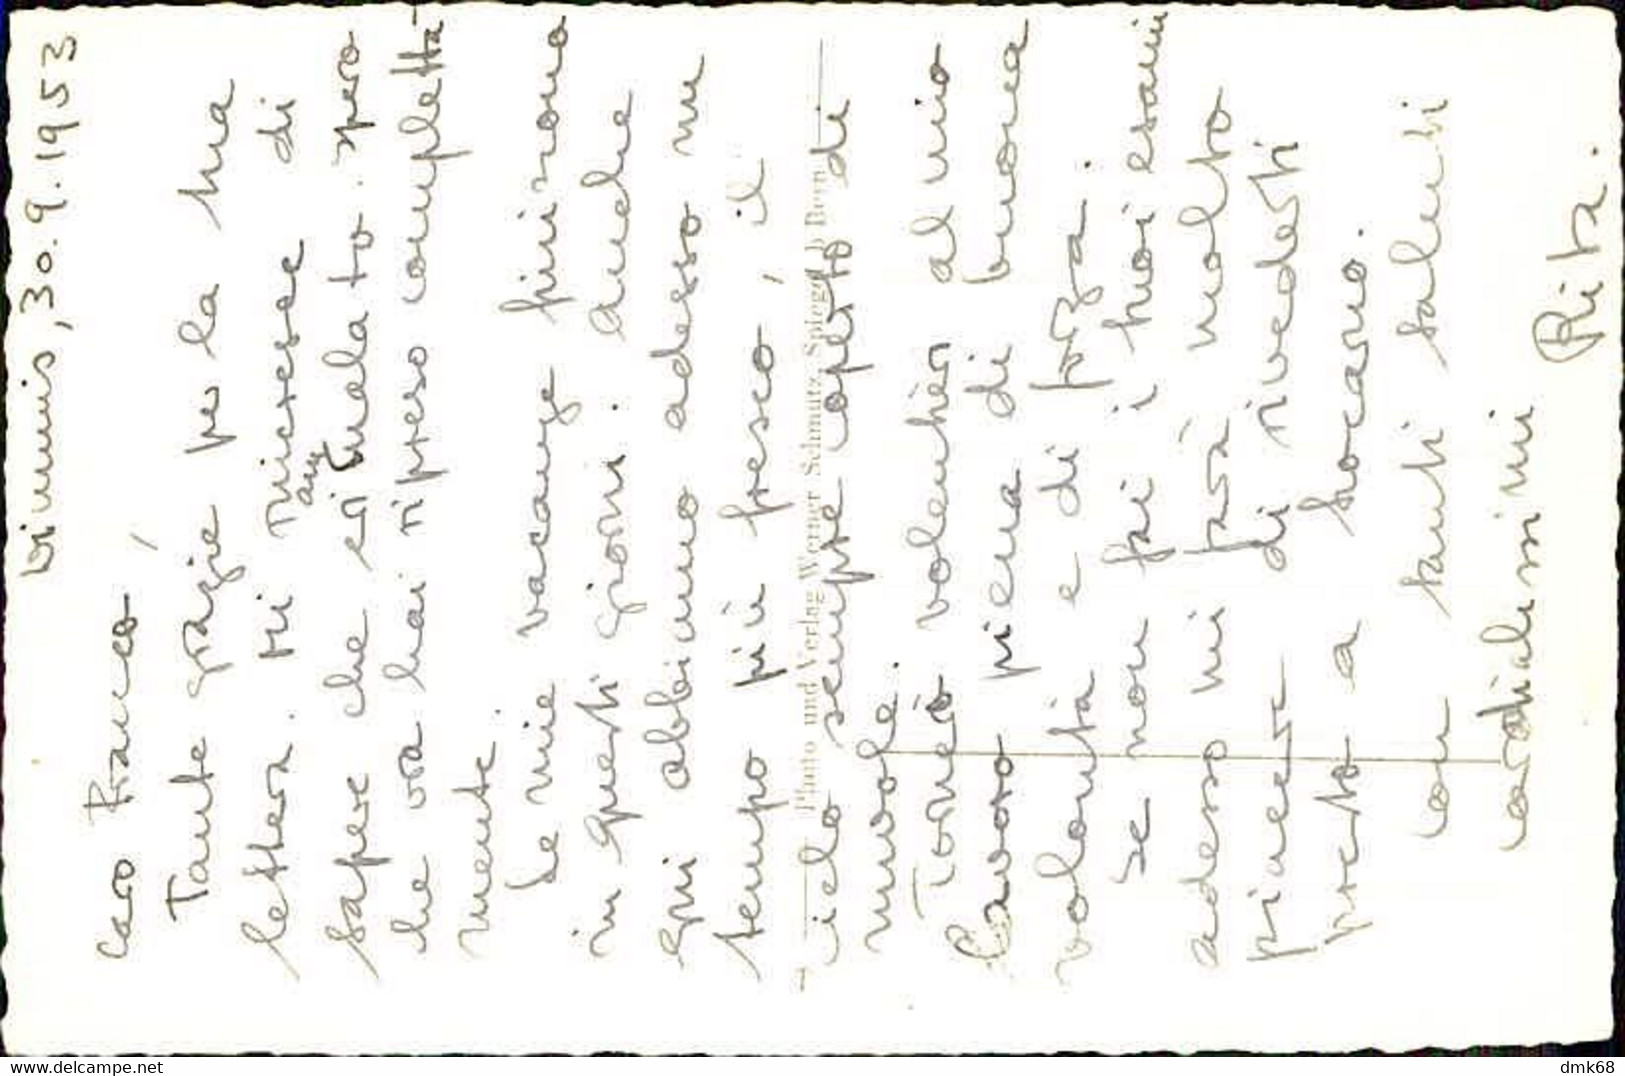 Wimmis, 30.9.1953
Caro Franco,
Tante grazie per la tua
lettera. Mi rincresce di
sapere che eri ammalato. spero
che ora hai ripreso completta-
mente.
Le mie vacanze finirono
in questi giorni. Anche
qui abbiamo adesso un
tempo più fresco, il
cielo sempre coperto di
nuvole.
Tornerò volentieri al mio
lavoro piena di buona
volontà e di forza.
Se non fai i tuoi esami
adesso mi farà molto
piacere di rivederti
presto a Locarno.
con tanti saluti
cordialissimi
Rita.
Photo und Verlag Werner Schmutz, Spiegel b Bern
dmk68